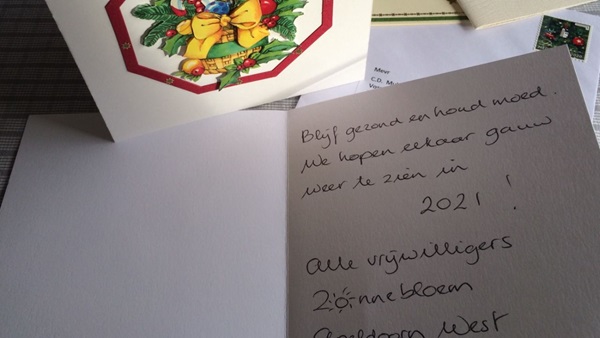 Mevr
C.D. M
Blijf gezond en houd moed.
We hopen elkaar gauw
weer te zien in
2021!
Alle vrijwilligers
Zonnebloem
Apeldoorn West